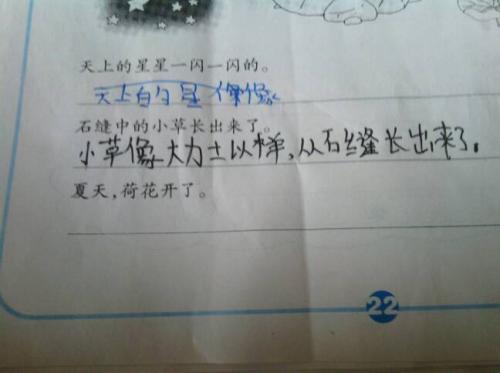 天上的星星一闪一闪的。
天上的星像
石缝中的小草长出来了。
小草像大力士以样,从石缝长出来了。
夏天,荷花开了。
22